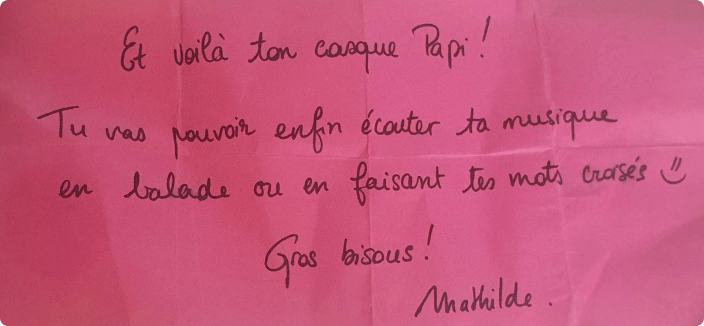 Et voilà ton casque Papi !
Tu vas pouvoir enfin écouter ta musique
en balade ou en faisant tes mots croisés :)
Gros bisous !
Mathilde.